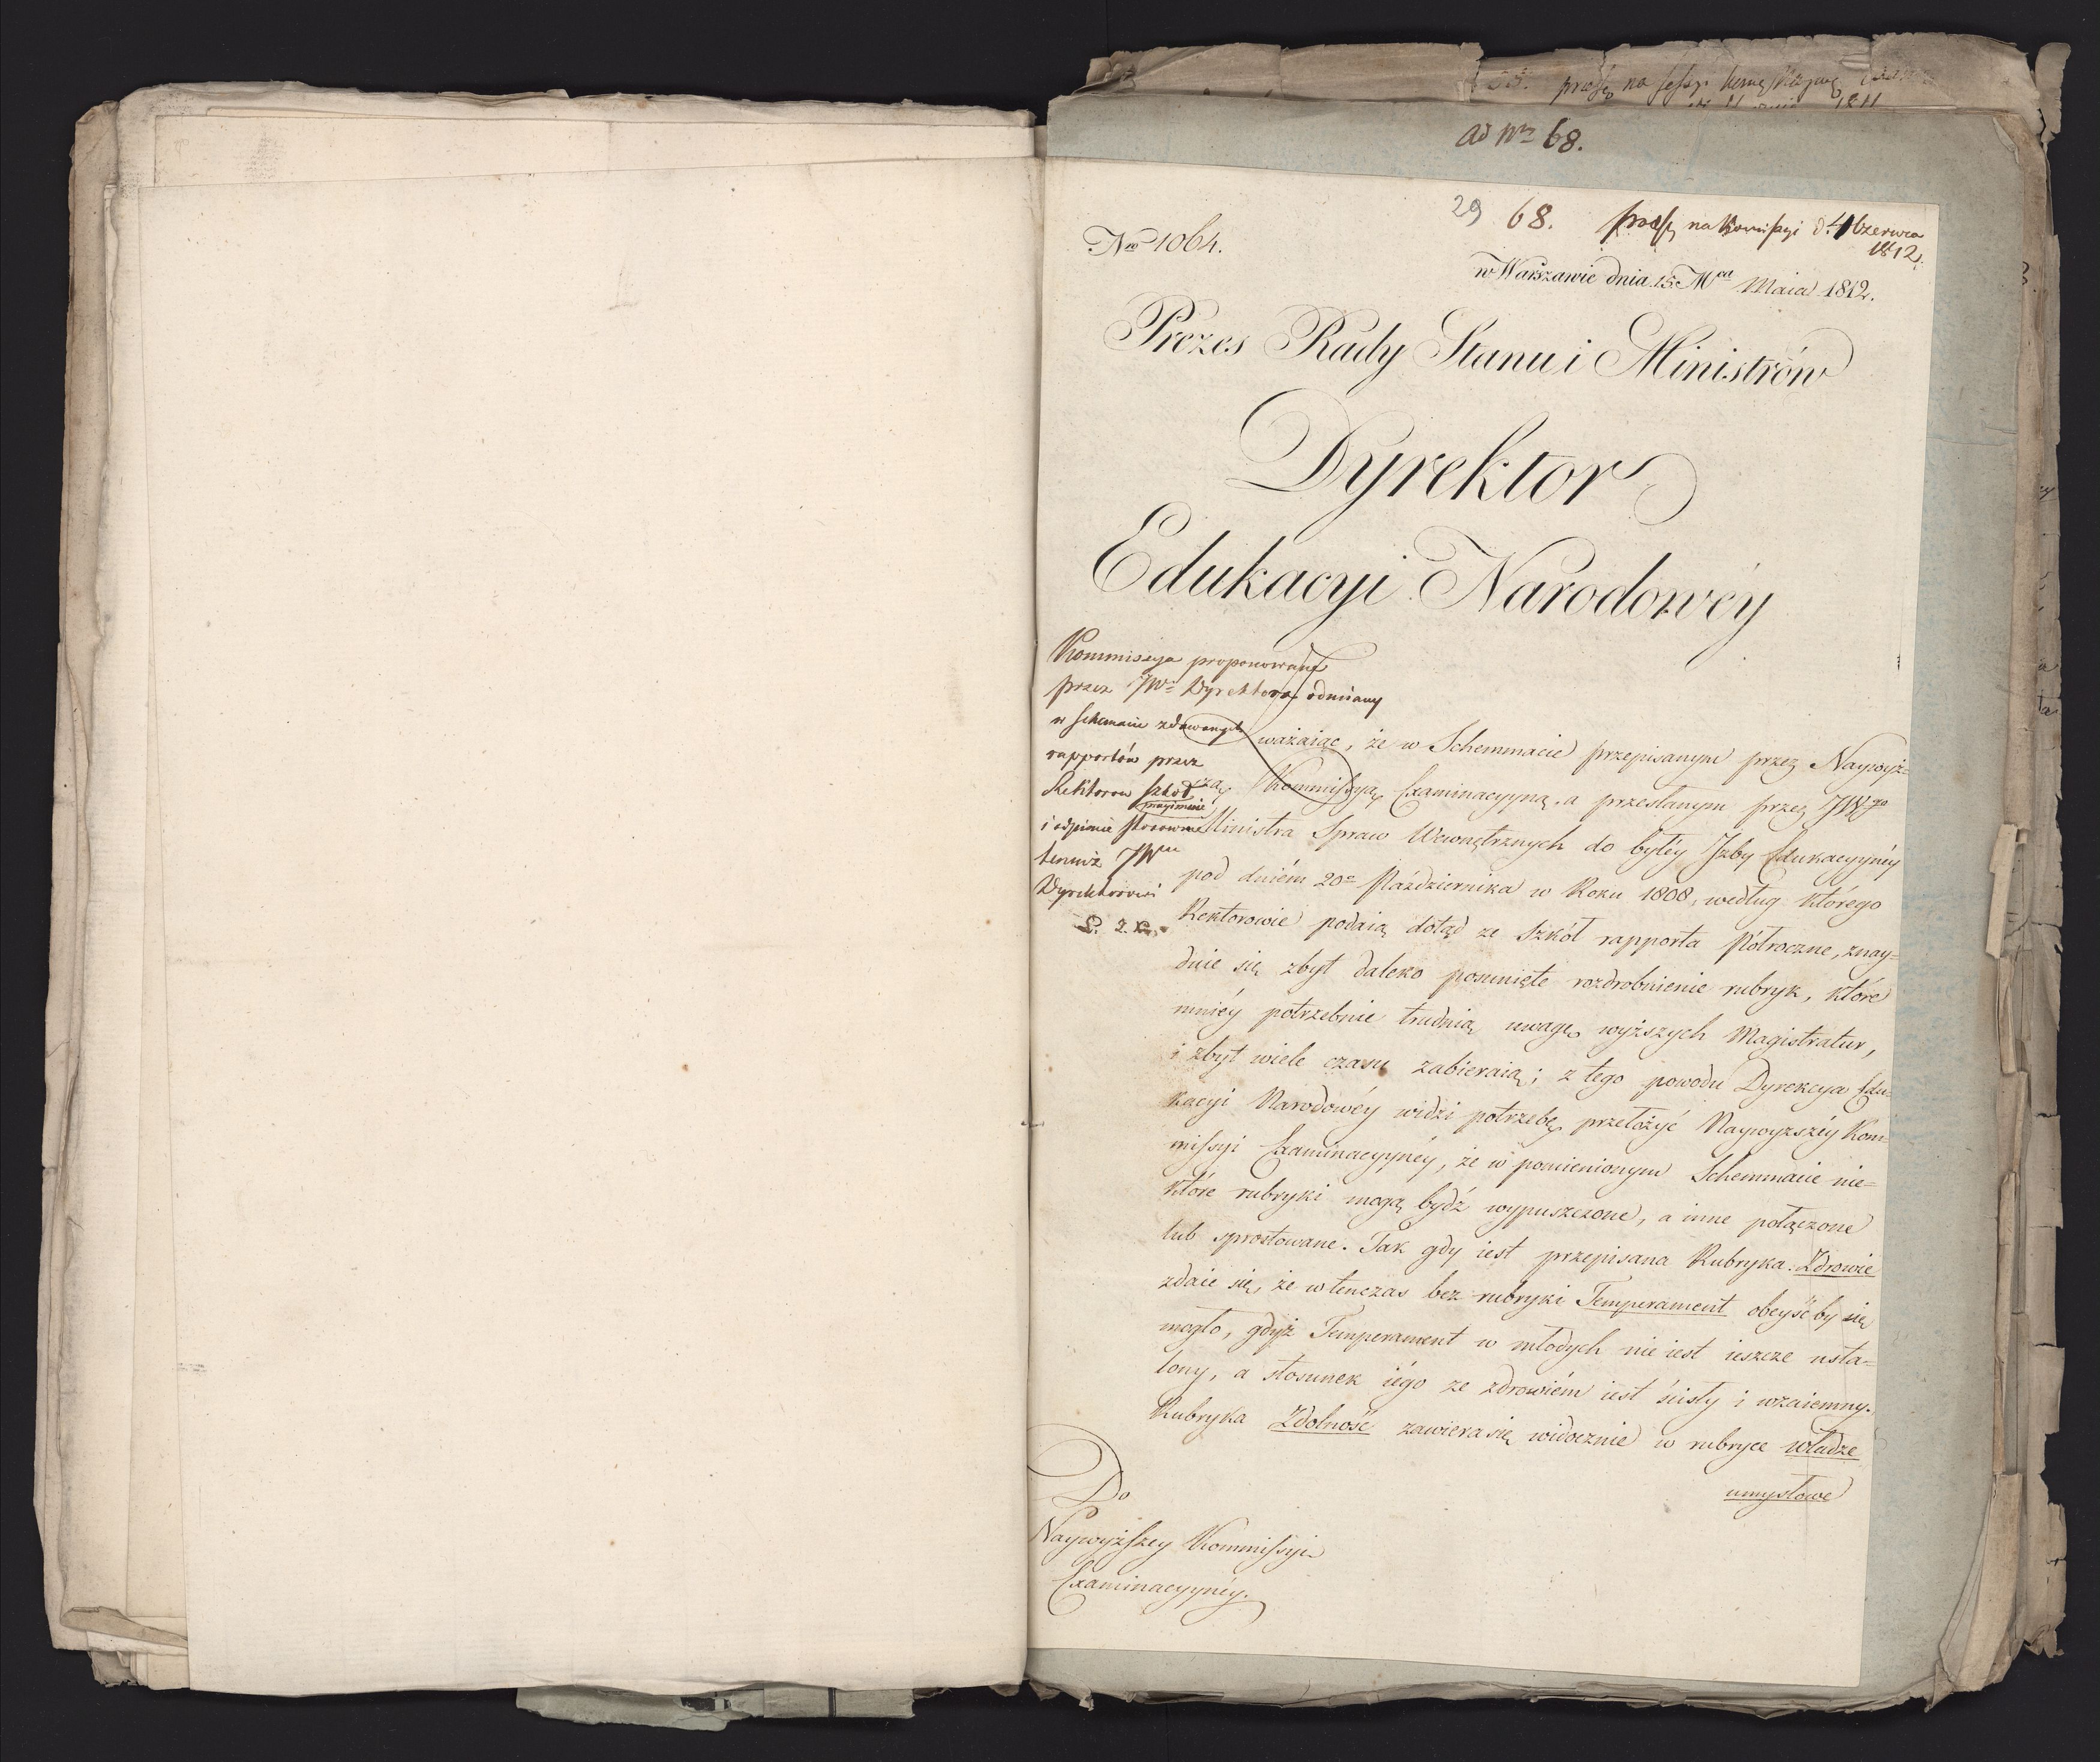 ad Nrm 68.
29 68. praes. na Kommissyi d. 4 Czerwca
1812.
Nro 1064.
w Warszawie dnia 15 Mca Maia 1812.
Prezes Rady Stanu i Ministrów
Dyrektor
Edukacyi Narodowéy
Kommissya proponowane
przez JWo Dyrektora odmiany
w Schemacie zdawanych
rapportów przez
Rektorow szkół
przyimuie
i odpisuie stosownie
temuż JWmu
Dyrektorowi
Uważaiąc, że w Schemmacie przepisanym przez Naywyż=
szą Kommissyą Examinacyyną, a przesłanym przez JWgo
Ministra Spraw Wewnętrznych do byłéy Izby Edukacyynéy
pod dniém 20o Października w Roku 1808, według którego
Rektorowie podaią dotąd ze Szkół rapporta Półroczne, znay=
duie się zbyt daleko posunięte rozdrobnienie rubryk, które
mniéy potrzebnie trudnią uwagę wyższych Magistratur,
i zbyt wiele czasu zabieraią; z tego powodu Dyrekcya Edu=
kacyi Narodowéy widzi potrzebę przełożyć Naywyzszéy Kom=
missyi Examinacyynéy, że w pomienionym Schemmacie nie=
które rubryki mogą bydź wypuszczone, a inne połączone
lub sprostowane. Tak gdy iest przepisana Rubryka: Zdrowie
zdaie się, że wtenczas bez rubryki Temperament obeyść by się
mogło, gdyż Temperament w młodych nie iest ieszcze usta=
lony, a stosunek iégo ze zdrowiém iest ścisły i wzaiemny.
Rubryka Zdolność zawiera się widocznie w rubryce władze
umysłowe
Do
Naywyższey Kommissyi
Examinacyynéy.